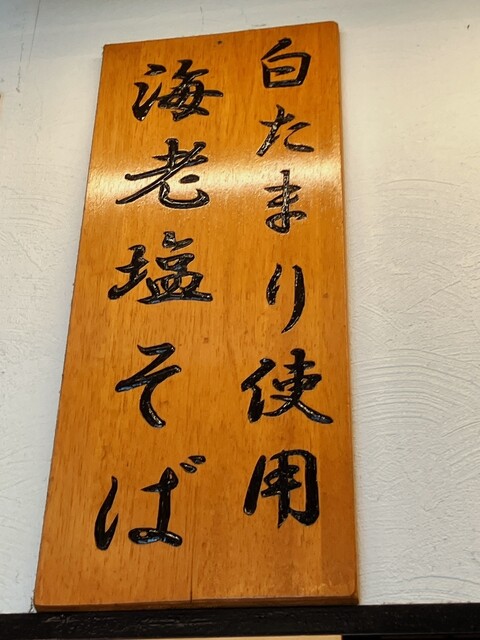 白たまり使用
海老塩そば